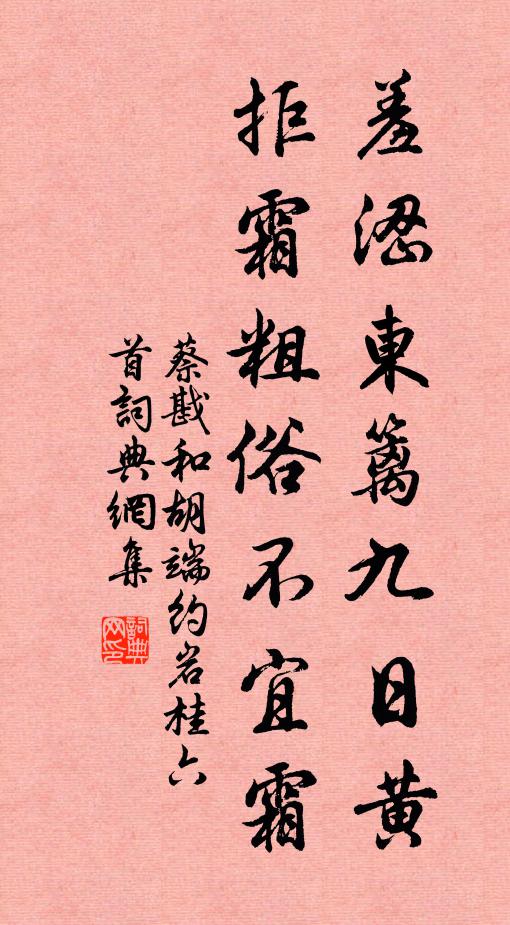 羞澀東篱九日黄
拒霜粗俗不宜霜
蔡戡和胡端约岩桂六
首詞典網集
詞典网印